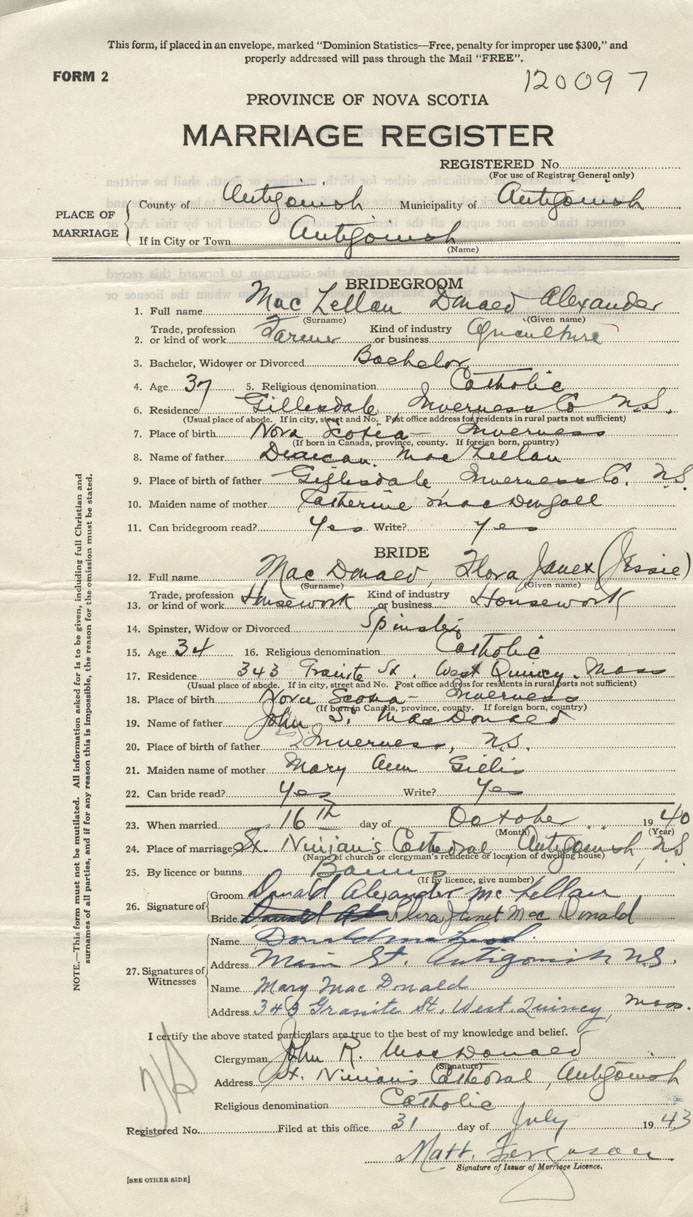 This form, if placed in an envelope, marked "Dominion Statistics—Free, penalty for improper use $300," and
properly addressed will pass through the Mail "FREE".
FORM 2
120097
PROVINCE OF NOVA SCOTIA
MARRIAGE REGISTER
REGISTERED No.
(For use of Registrar General only)
PLACE OF MARRIAGE
County of Antigonish Municipality of Antigonish
If in City or Town Antigonish
(Name)
BRIDEGROOM
1. Full name MacLellan Donald Alexander
(Surname) (Given name)
2. Trade, profession or kind of work Farmer Kind of industry or business Agriculture
3. Bachelor, Widower or Divorced Bachelor
4. Age 37 5. Religious denomination Catholic
6. Residence Gillesdale Inverness Co N.S.
(Usual place of abode. If in city, street and No. Post office address for residents in rural parts not sufficient)
7. Place of birth Nova Scotia Inverness
(If born in Canada, province, county. If foreign born, country)
8. Name of father Duncan MacLellan
9. Place of birth of father Gillesdale Inverness Co. N.S.
10. Maiden name of mother Catherine MacDougall
11. Can bridegroom read? Yes Write? Yes
BRIDE
12. Full name MacDonald, Flora Janet (Jessie)
(Surname) (Given name)
13. Trade, profession or kind of work Housework Kind of industry or business Housework
14. Spinster, Widow or Divorced Spinster
15. Age 34 16. Religious denomination Catholic
17. Residence 343 Granite St. West Quincy, Mass
(Usual place of abode. If in city, street and No. Post office address for residents in rural parts not sufficient)
18. Place of birth Nova Scotia - Inverness
(If born in Canada, province, county. If foreign born, country)
19. Name of father John S. MacDonald
20. Place of birth of father Inverness, N.S.
21. Maiden name of mother Mary Ann Gillis
22. Can bride read? Yes Write? Yes
23. When married 16th day of October 1940
(Month) (Year)
24. Place of marriage St. Ninian's Cathedral Antigonish, N.S.
(Name of church or clergyman's residence or location of dwelling house)
25. By licence or banns Banns
(If by licence, give number)
26. Signature of
Groom Donald Alexander McLellan
Bride Flora Janet MacDonald
27. Signatures of Witnesses
Name Donald
Address Main St. Antigonish N.S.
Name Mary MacDonald
Address 343 Granite St. West Quincy, Mass.
I certify the above stated particulars are true to the best of my knowledge and belief.
Clergyman John R. MacDonald
(Signature)
Address St. Ninian's Cathedral, Antigonish
Religious denomination Catholic
Registered No. Filed at this office 31 day of July 1943
Matt. Ferguson
Signature of Issuer of Marriage Licence.
[SEE OTHER SIDE]
NOTE.—This form must not be mutilated. All information asked for is to be given, including full Christian and
surnames of all parties, and if for any reason this is impossible, the reason for the omission must be stated.